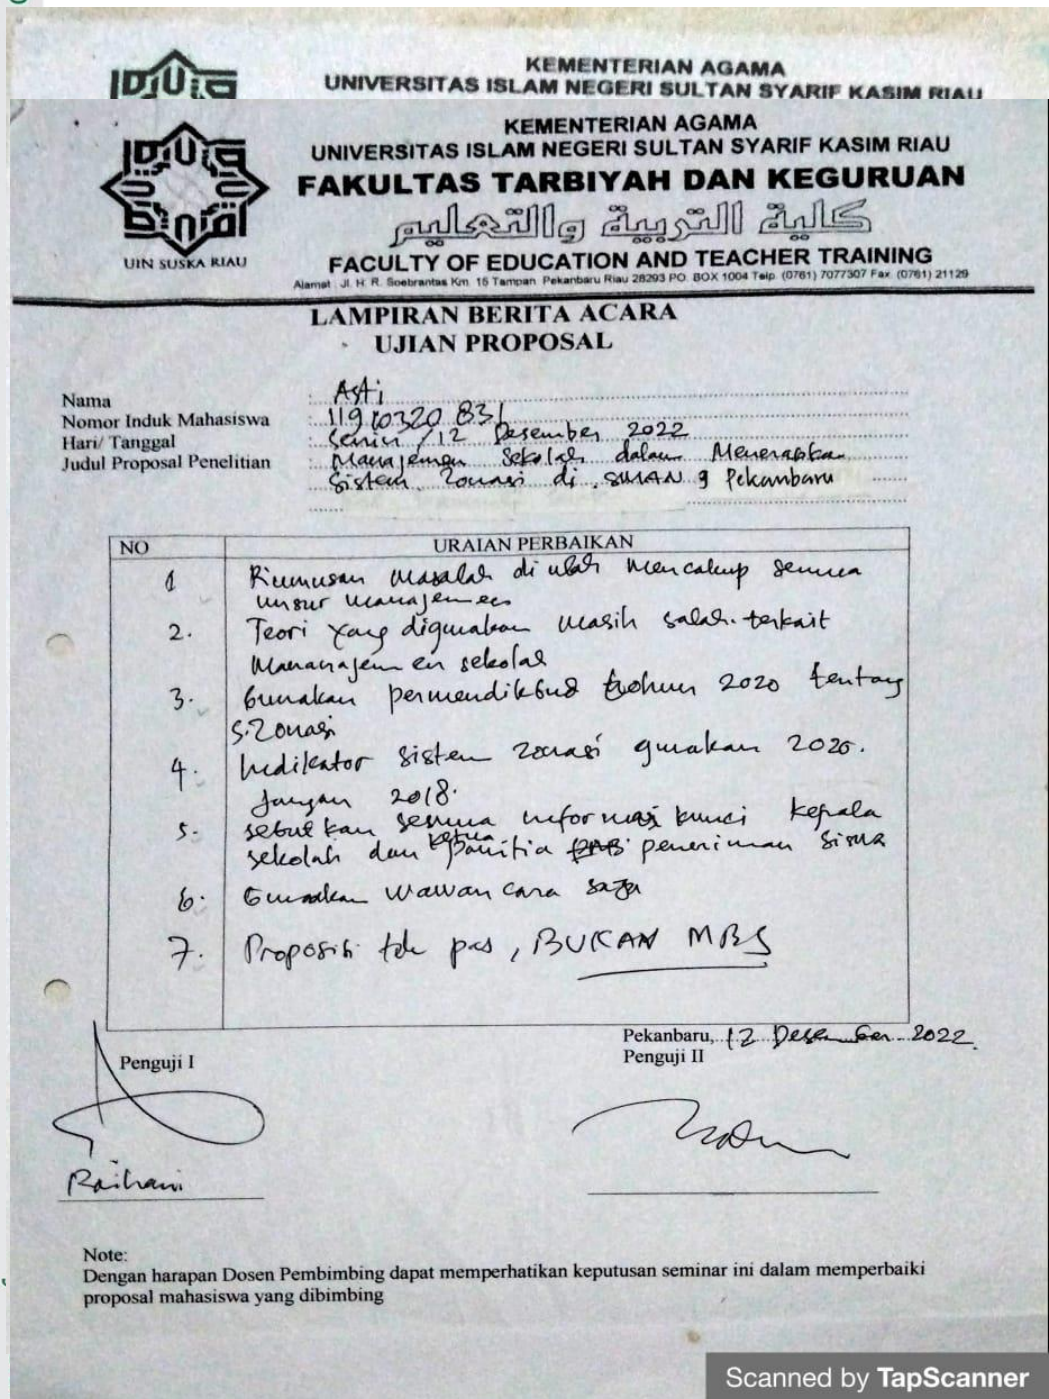 KEMENTERIAN AGAMA
UNIVERSITAS ISLAM NEGERI SULTAN SYARIF KASIM RIAU
KEMENTERIAN AGAMA
UNIVERSITAS ISLAM NEGERI SULTAN SYARIF KASIM RIAU
FAKULTAS TARBIYAH DAN KEGURUAN
كلية التربية والتعليم
FACULTY OF EDUCATION AND TEACHER TRAINING
UIN SUSKA RIAU
Alamat : Jl. H. R. Soebrantas Km. 15 Tampan Pekanbaru Riau 28293 PO. BOX 1004 Telp. (0761) 7077307 Fax. (0761) 21129
LAMPIRAN BERITA ACARA
UJIAN PROPOSAL
Nama : Asti
Nomor Induk Mahasiswa : 11910320 831
Hari/ Tanggal : Senin / 12 Desember 2022
Judul Proposal Penelitian : Manajemen Sekolah dalam Menerapkan
Sistem Zonasi di SMAN 9 Pekanbaru
NO URAIAN PERBAIKAN
1 Rumusan masalah di ubah mencakup semua
unsur manajemen
2. Teori yang digunakan masih salah terkait
Mananajemen sekolah
3. Gunakan permendikbud tahun 2020 tentang
S. Zonasi
4. Indikator sistem zonasi gunakan 2020.
Jangan 2018.
5. sebutkan semua informasi kunci kepala
sekolah dan ketua panitia penerimaan siswa
6. Gunakan wawancara saja
7. Proposisi tdk pas, BUKAN MBS
Pekanbaru, 12 Desember 2022
Penguji I
Penguji II
Raihani
Note:
Dengan harapan Dosen Pembimbing dapat memperhatikan keputusan seminar ini dalam memperbaiki
proposal mahasiswa yang dibimbing
Scanned by TapScanner